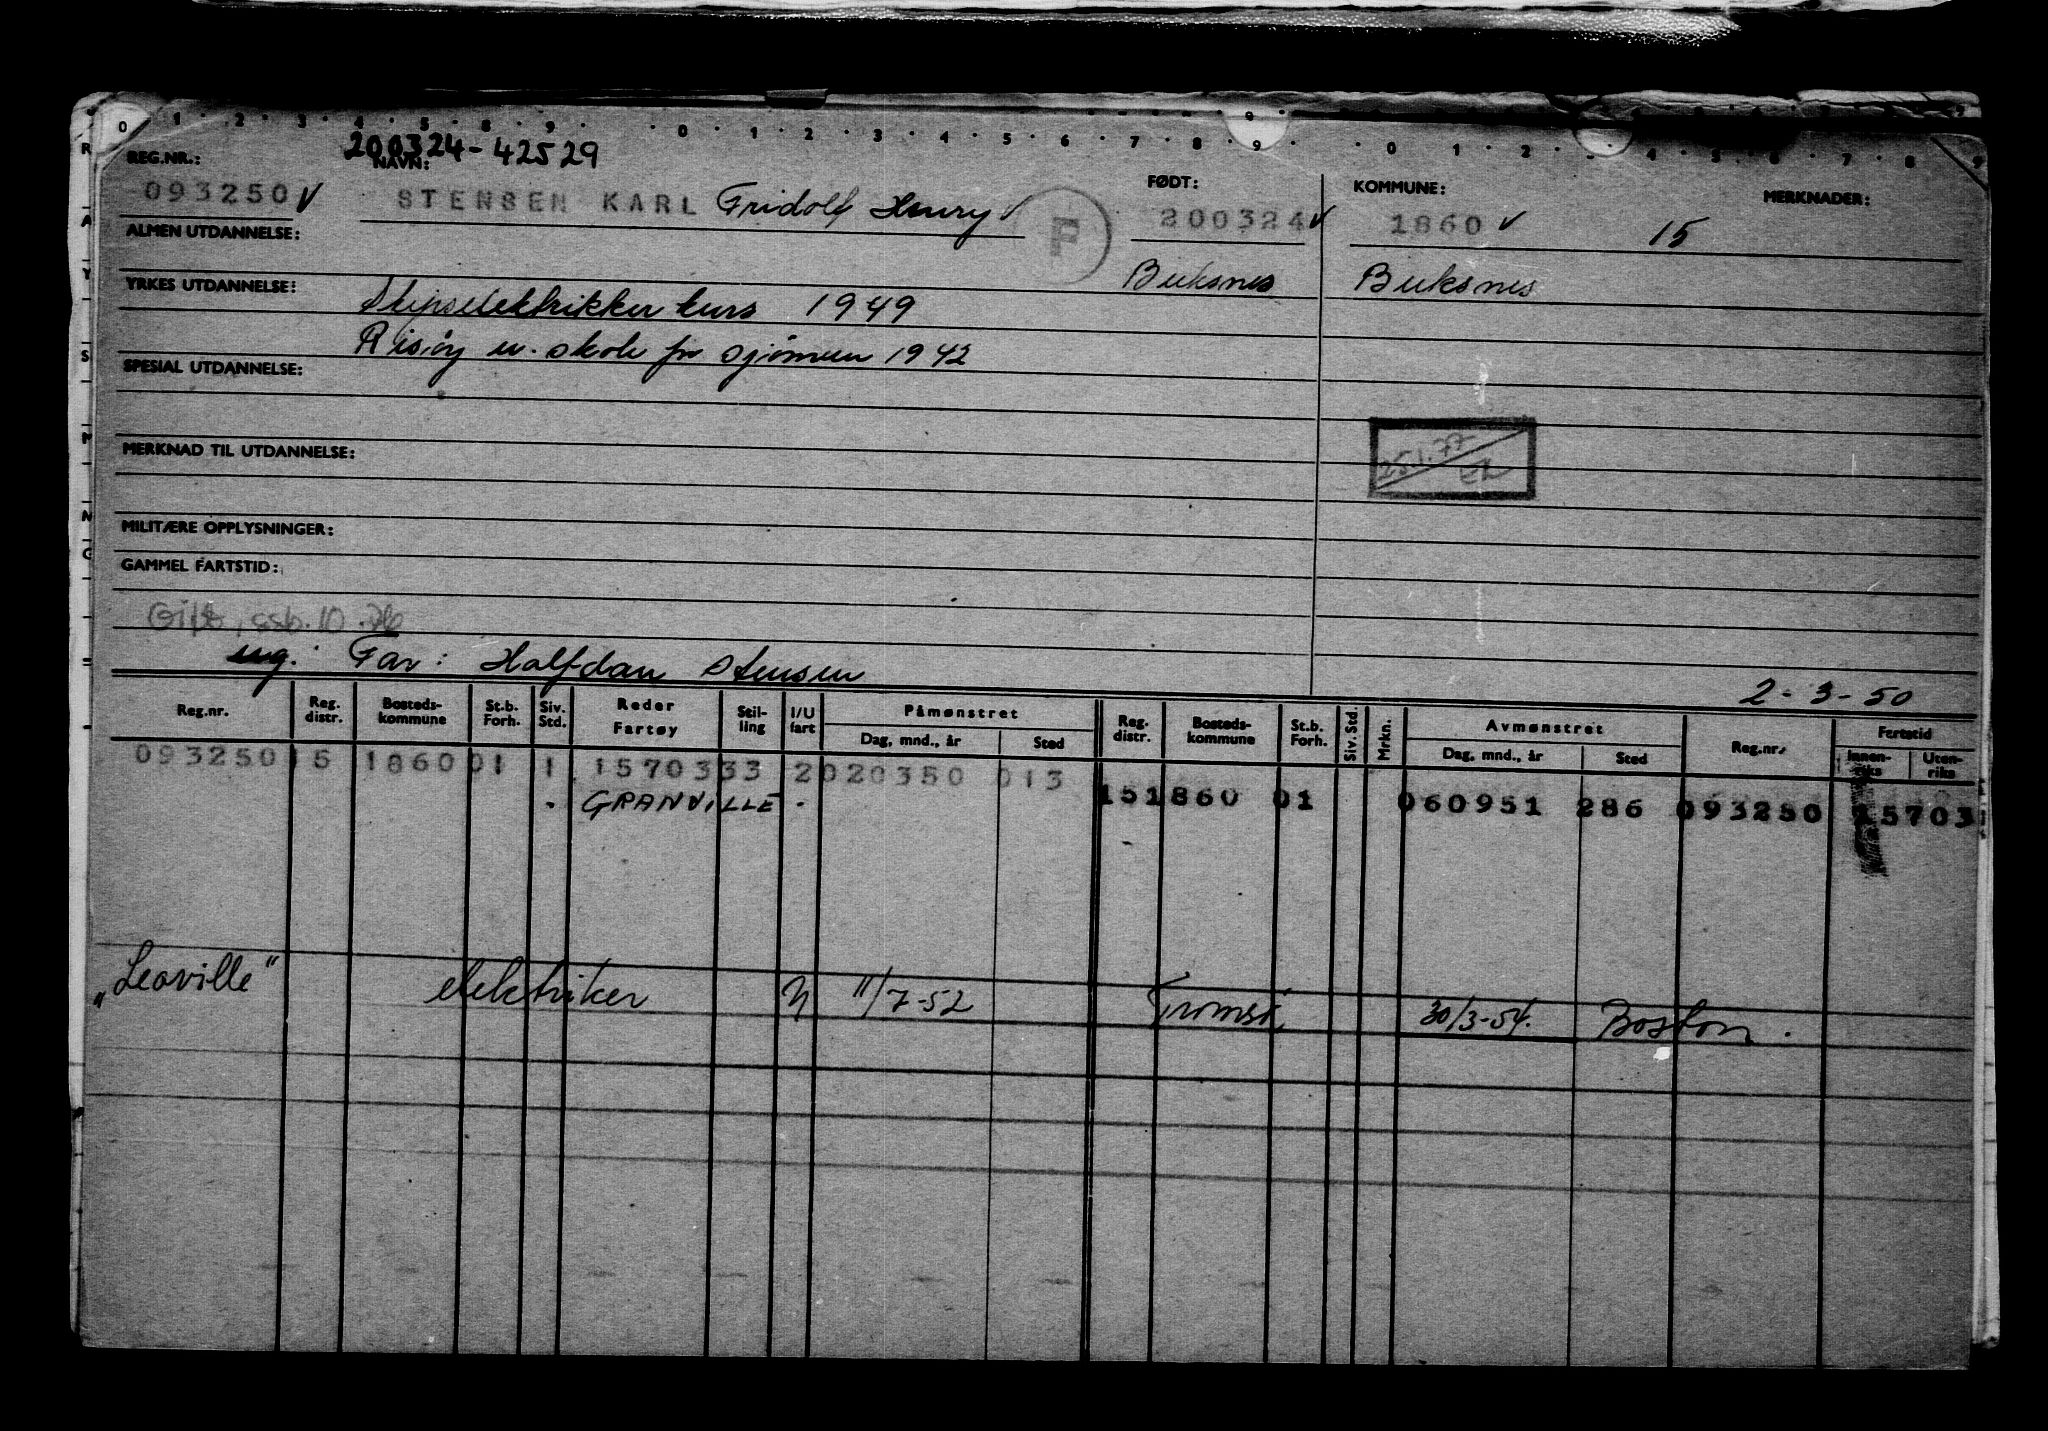 0 1 2 3 4 5 8 9 0 1 2 3 4 5 6 7 8 9 0 1 2 4 5 6 7 8 9
200324-42529
REG.NR.: NAVN: FØDT: KOMMUNE: MERKNADER:
093250 V STENSEN KARL Fridolf Henry V F 200324 V 1860 V 15
ALMEN UTDANNELSE:
Buksnes Buksnes
YRKES UTDANNELSE: Skipselektrikker kurs 1949
Risøy u. skole for sjømenn 1942
SPESIAL UTDANNELSE:
MERKNAD TIL UTDANNELSE:
MILITÆRE OPPLYSNINGER:
GAMMEL FARTSTID:
Gift, ssb. 10.76
ug. Far: Halfdan Stensen
2-3-50
Reg.nr. Reg. distr. Bosteds-kommune St.b. Forh. Siv. Std. Reder Fartøy Stil-ling I/U fart Påmønstret Dag, mnd., år Sted Reg. distr. Bosteds-kommune St.b. Forh. Siv. Std. Mrkn. Avmønstret Dag, mnd., år Sted Reg.nr. Fartstid Innen-riks Uten-riks
093250 15 1860 01 1 1570333 2 020350 013
GRANVILLE 15 1860 01 060951 286 093250 15703
„Leoville" elektriker U 11/7-52 Tromsø 30/3-54. Boston.